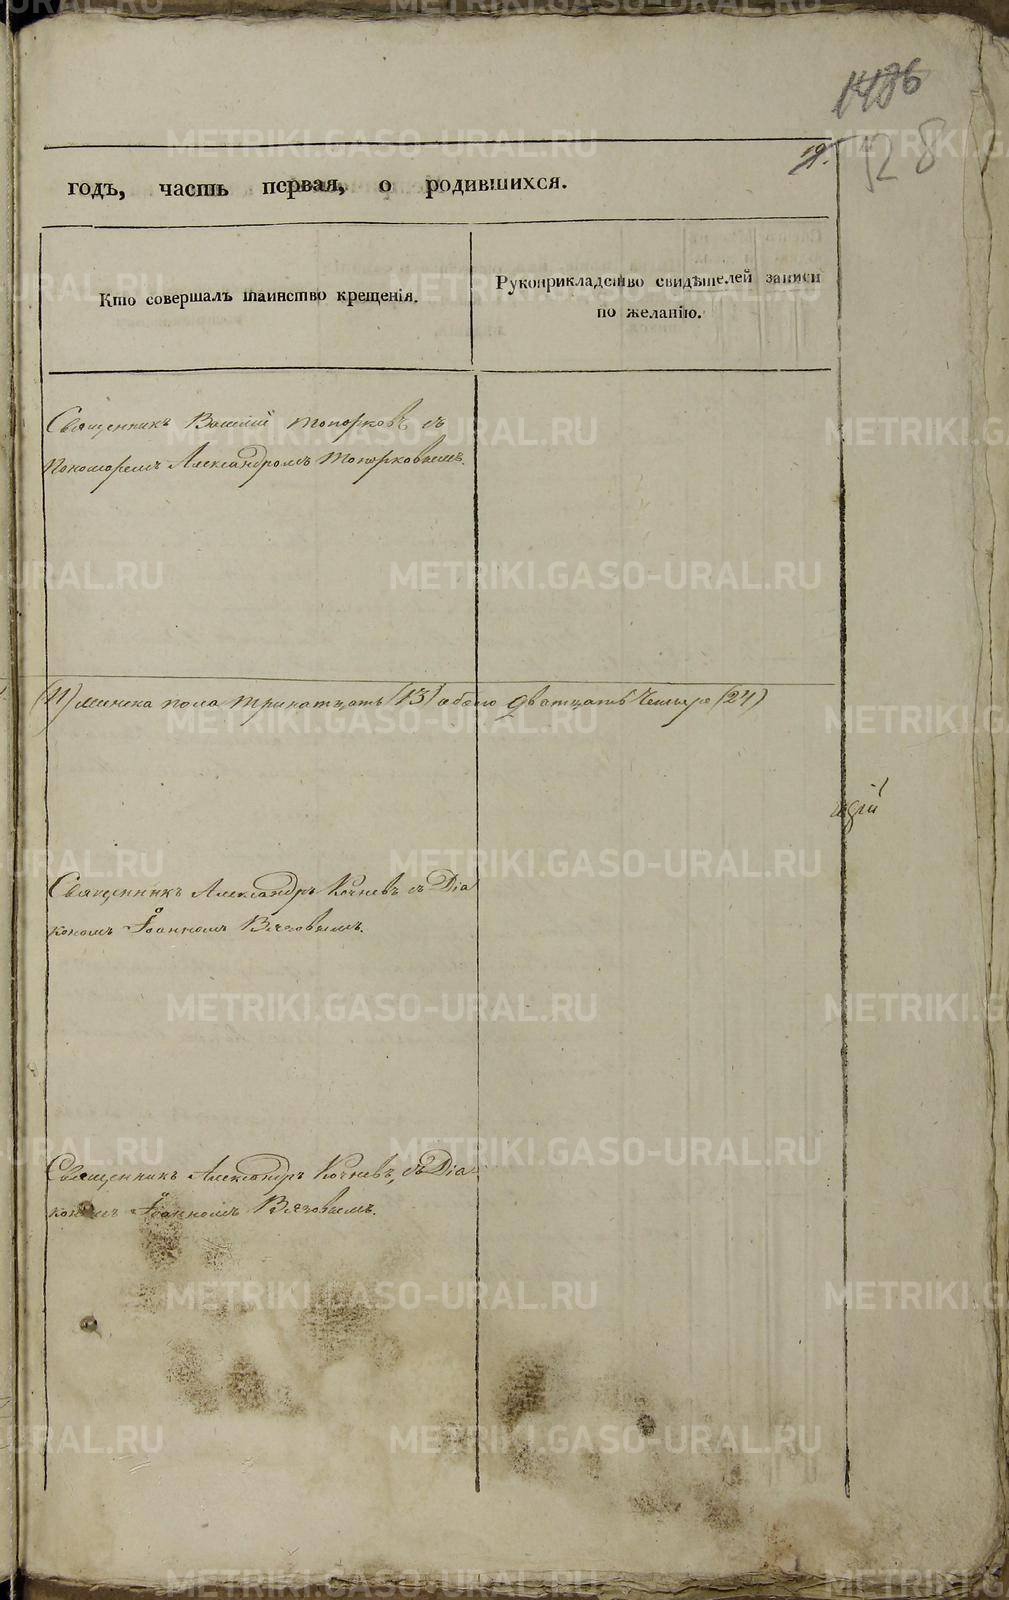 1486
528
19.
годъ, часть первая, о родившихся.
Кто совершалъ таинство крещенія.
Рукоприкладство свидѣтелей записи
по желанію.
Священникъ Василій Топорковъ съ
Пономоремъ Александромъ Топорковымъ.
(11) женска пола тринатцать (13) обоего дватцать Четыре (24)
Священникъ Александръ Кочневъ съ Діа
кономъ Іоанномъ Вяговымъ.
Священникъ Александръ Кочневъ, съ Діа
кономъ Іоанномъ Вяговымъ.
METRIKI.GASO-URAL.RU